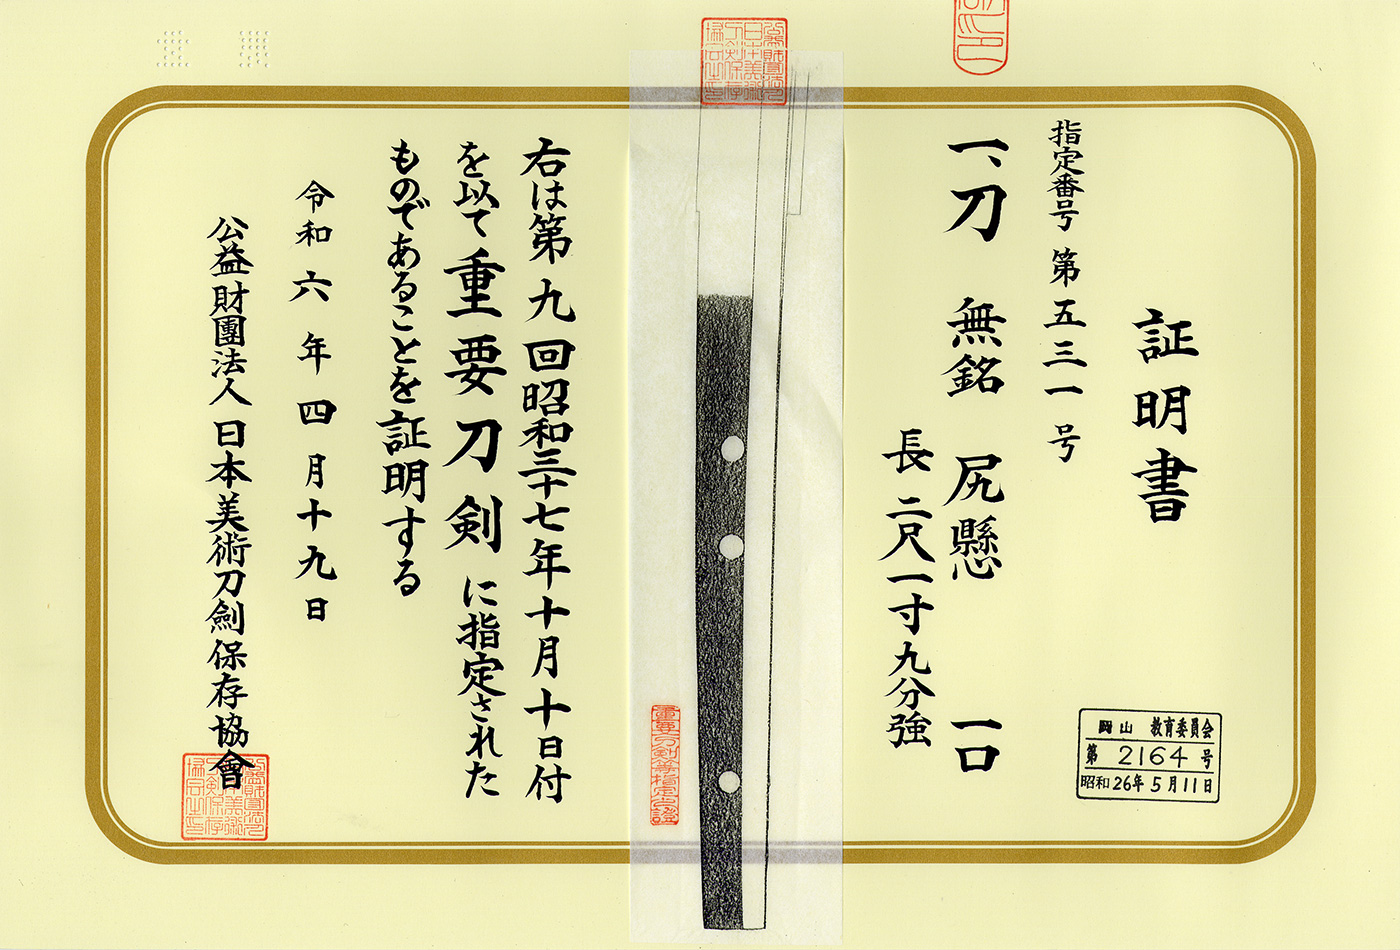 証明書
指定番号 第五三一号
一、刀 無銘 尻懸 一口
長 二尺一寸九分強
右は第九回昭和三十七年十月十日付
を以て重要刀剣に指定された
ものであることを証明する
令和六年四月十九日
公益財團法人日本美術刀劍保存協會
岡山 教育委員会
第 2164 号
昭和 26年 5月 11日